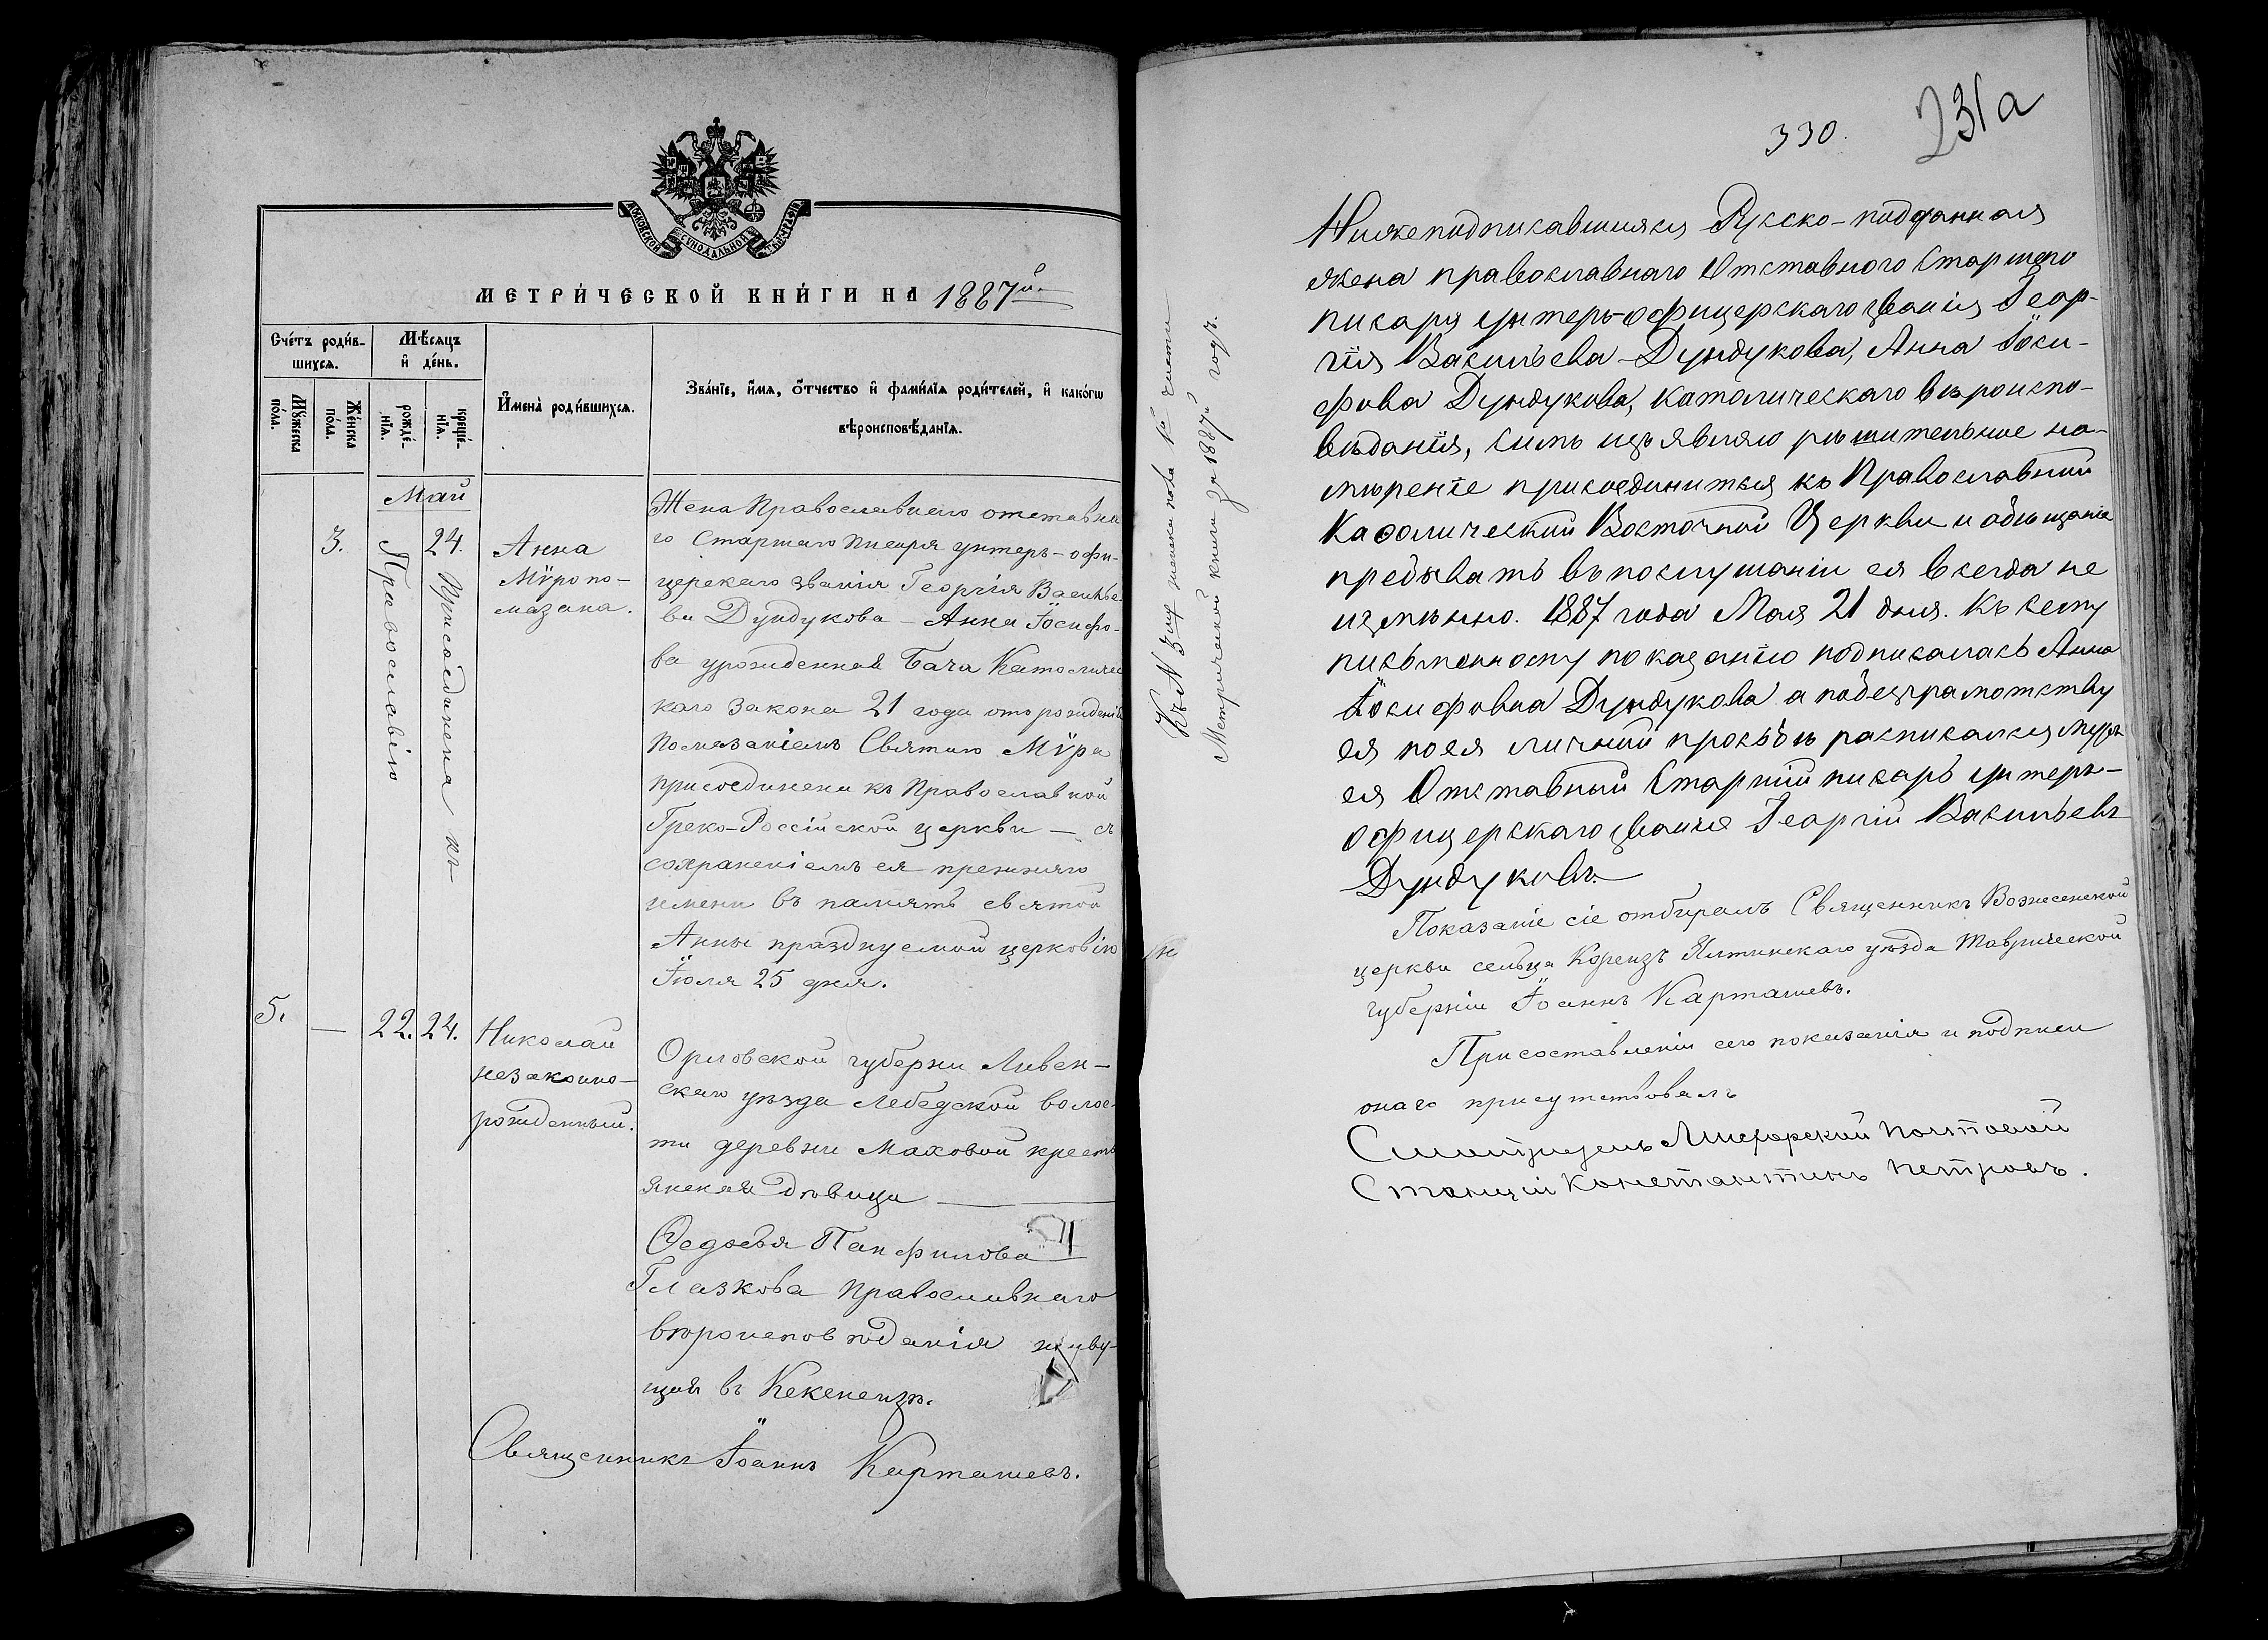 МОСКОВСКОЙ СѴНОДАЛЬНОЙ ТѴПОГРАФІИ
МЕТРИ́ЧЕСКОЙ КНИ́ГИ НА 1887й.
Сче́тъ роди́в-
шихся.
Мѣ́сяцъ
и҆ де́нь.
Му́жеска
по́ла.
Же́нска
по́ла.
рожде́-
нїя.
креще́-
нїя.
И҆мена̀ роди́вшихся.
Зва́нїе, и҆́мя, ѻ҆́тчество и҆ фами́лїя роди́телей, и҆ како́гѡ
вѣроисповѣ́данїя.
Май
3.
24. Присоединена къ
Православію
Анна
Мѵропо-
мазана.
Жена Православнаго отставна
го Старшаго Писаря унтеръ-офи-
церскаго званія Георгія Василье
ва Дундукова - Анна Іосифо-
ва урожденная Бача Католичес
каго закона 21 года отъ рожденія
Помазаніемъ Святаго Мѵра
присоединена къ Православной
Греко-Россійской церкви — съ
сохраненіемъ ея прежняго
имени въ память святой
Анны празднуемой церковію
Іюля 25 дня.
5.
—
22.
24.
Николай
незаконно-
рожденный.
Орловской губерни Ливен-
скаго уѣзда Лебедской волос-
ти деревни Маховой кресть
янская дѣвица
Ѳедосья Панфилова
Глазкова Православнаго
вѣроисповѣданія живу-
щая въ Кекенеизѣ.
Священникъ Іоаннъ Карташевъ.
330.
231а
Къ № 3му женска пола 1й части
Метрической книги за 1887й годъ.
Нижеподписавшияся Русско-подданная
жена православнаго Отставного Старшего
писаря унтеръ-офицерскаго званія Геор-
гія Васильева-Дундукова, Анна Іоси-
фова Дундукова, католическаго вѣроиспо-
вѣданія, симъ изъявляю рѣшительное на-
мѣреніе присоединиться къ Православной
Каѳолической Восточной Церкви и обѣщаніе
пребывать въ послушаніи ея всегда не
измѣнно. 1887 года Мая 21 дня. Къ сему
письменному показанію подписалась Анна
Іосифовна Дундукова а по безграмотству
ея по ея личной просьбѣ расписался мужъ
ея Отставный Старшій писарь унтеръ-
офицерскаго званія Георгій Васильевъ
Дундуковъ.
Показаніе сіе отбиралъ Священникъ Вознесенской
церкви сельца Кореизъ Ялтинскаго уѣзда Таврической
губерніи Іоаннъ Карташевъ.
При составленіи сего показанія и подписи
онаго присутствовалъ
Смотритель Мисхорской почтовой
Станціи Константинъ Петровъ.